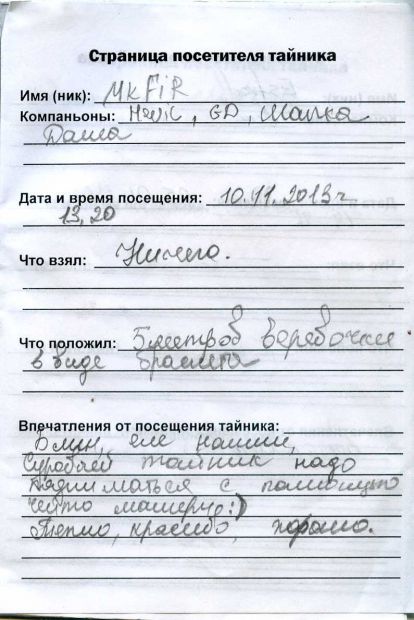 Страница посетителя тайника
Имя (ник): MkFiR
Компаньоны: Mavic, GD, Шапка
Даша
Дата и время посещения: 10.11.2013г
13,20
Что взял: Ничего.
Что положил: 5 метров веревочки
в виде браслета
Впечатления от посещения тайника:
Блин, еле нашли,
Суровый тайник надо
с помощью
чейто матери:)
Тепло, красиво, хорошо.